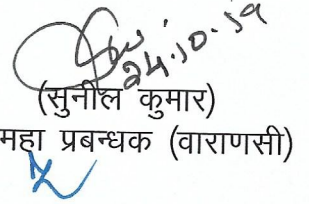 24.10.19
(सुनील कुमार)
महा प्रबन्धक (वाराणसी)